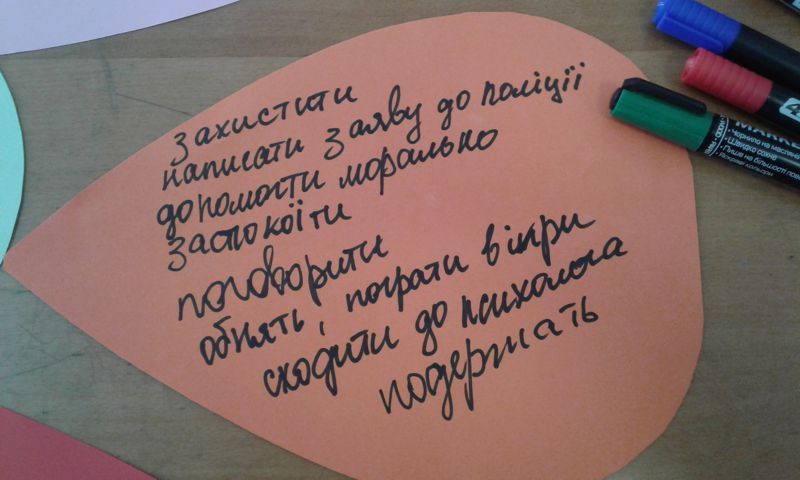 захистити
написати заяву до поліції
допомогти морально
заспокоїти
поговорити
обнять, пограти в ігри
сходити до психолога
подержать
MARKER
Чорнило на масляній
Швидко сохне
Пише на більшості пове
Яскраві кольори